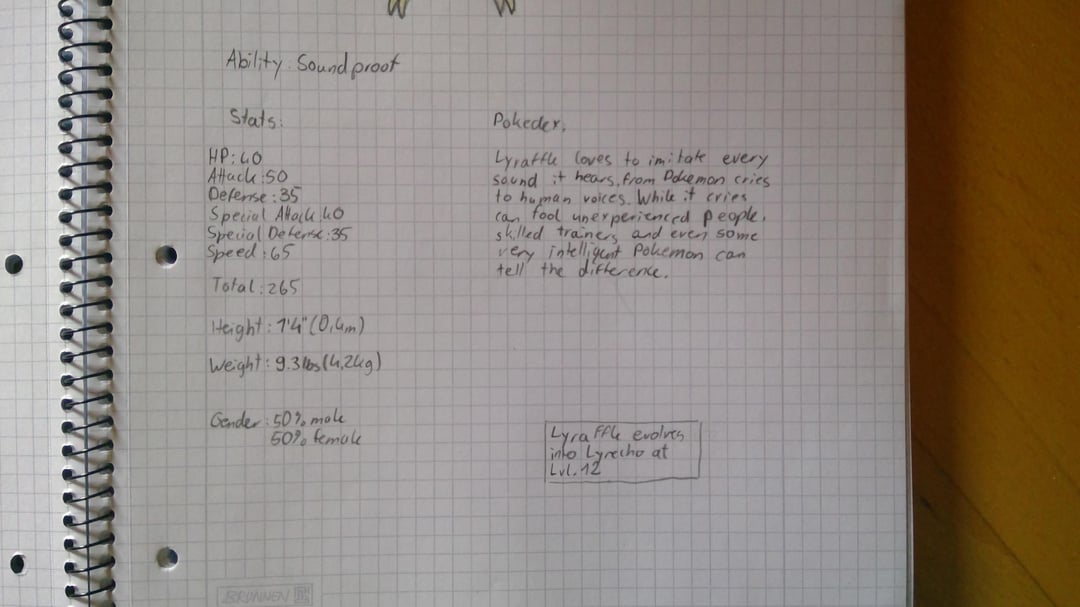 Ability: Soundproof
Stats:
HP: 40
Attack: 50
Defense: 35
Special Attack: 40
Special Defense: 35
Speed: 65
Total: 265
Height: 1'4" (0,4m)
Weight: 9.3lbs (4,2kg)
Gender: 50% male
50% female
Pokedex:
Lyraffle loves to imitate every
sound it hears, from Pokemon cries
to human voices. While it cries
can fool unexperienced people,
skilled trainers and even some
very intelligent Pokemon can
tell the difference.
Lyraffle evolves
into Lyrecho at
Lvl. 12
BRUNNEN